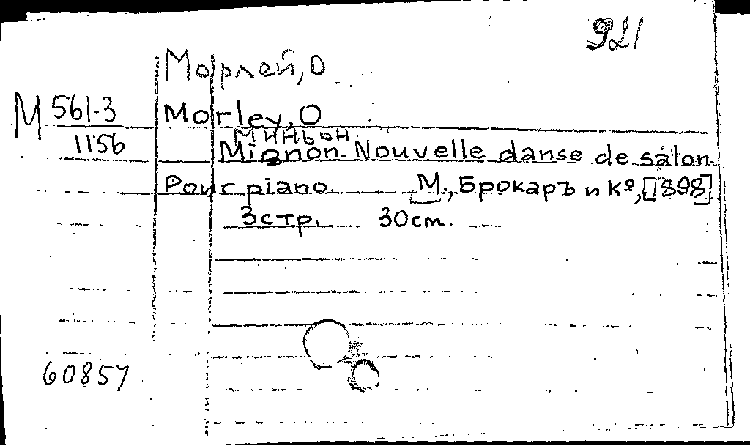 921
Морлей, О
М 561-3
1156
Morley, O
Миньон
Mignon. Nouvelle danse de salon
Pour piano. М., Брокаръ и К°, [1898]
3 стр. 30 cm.
60857